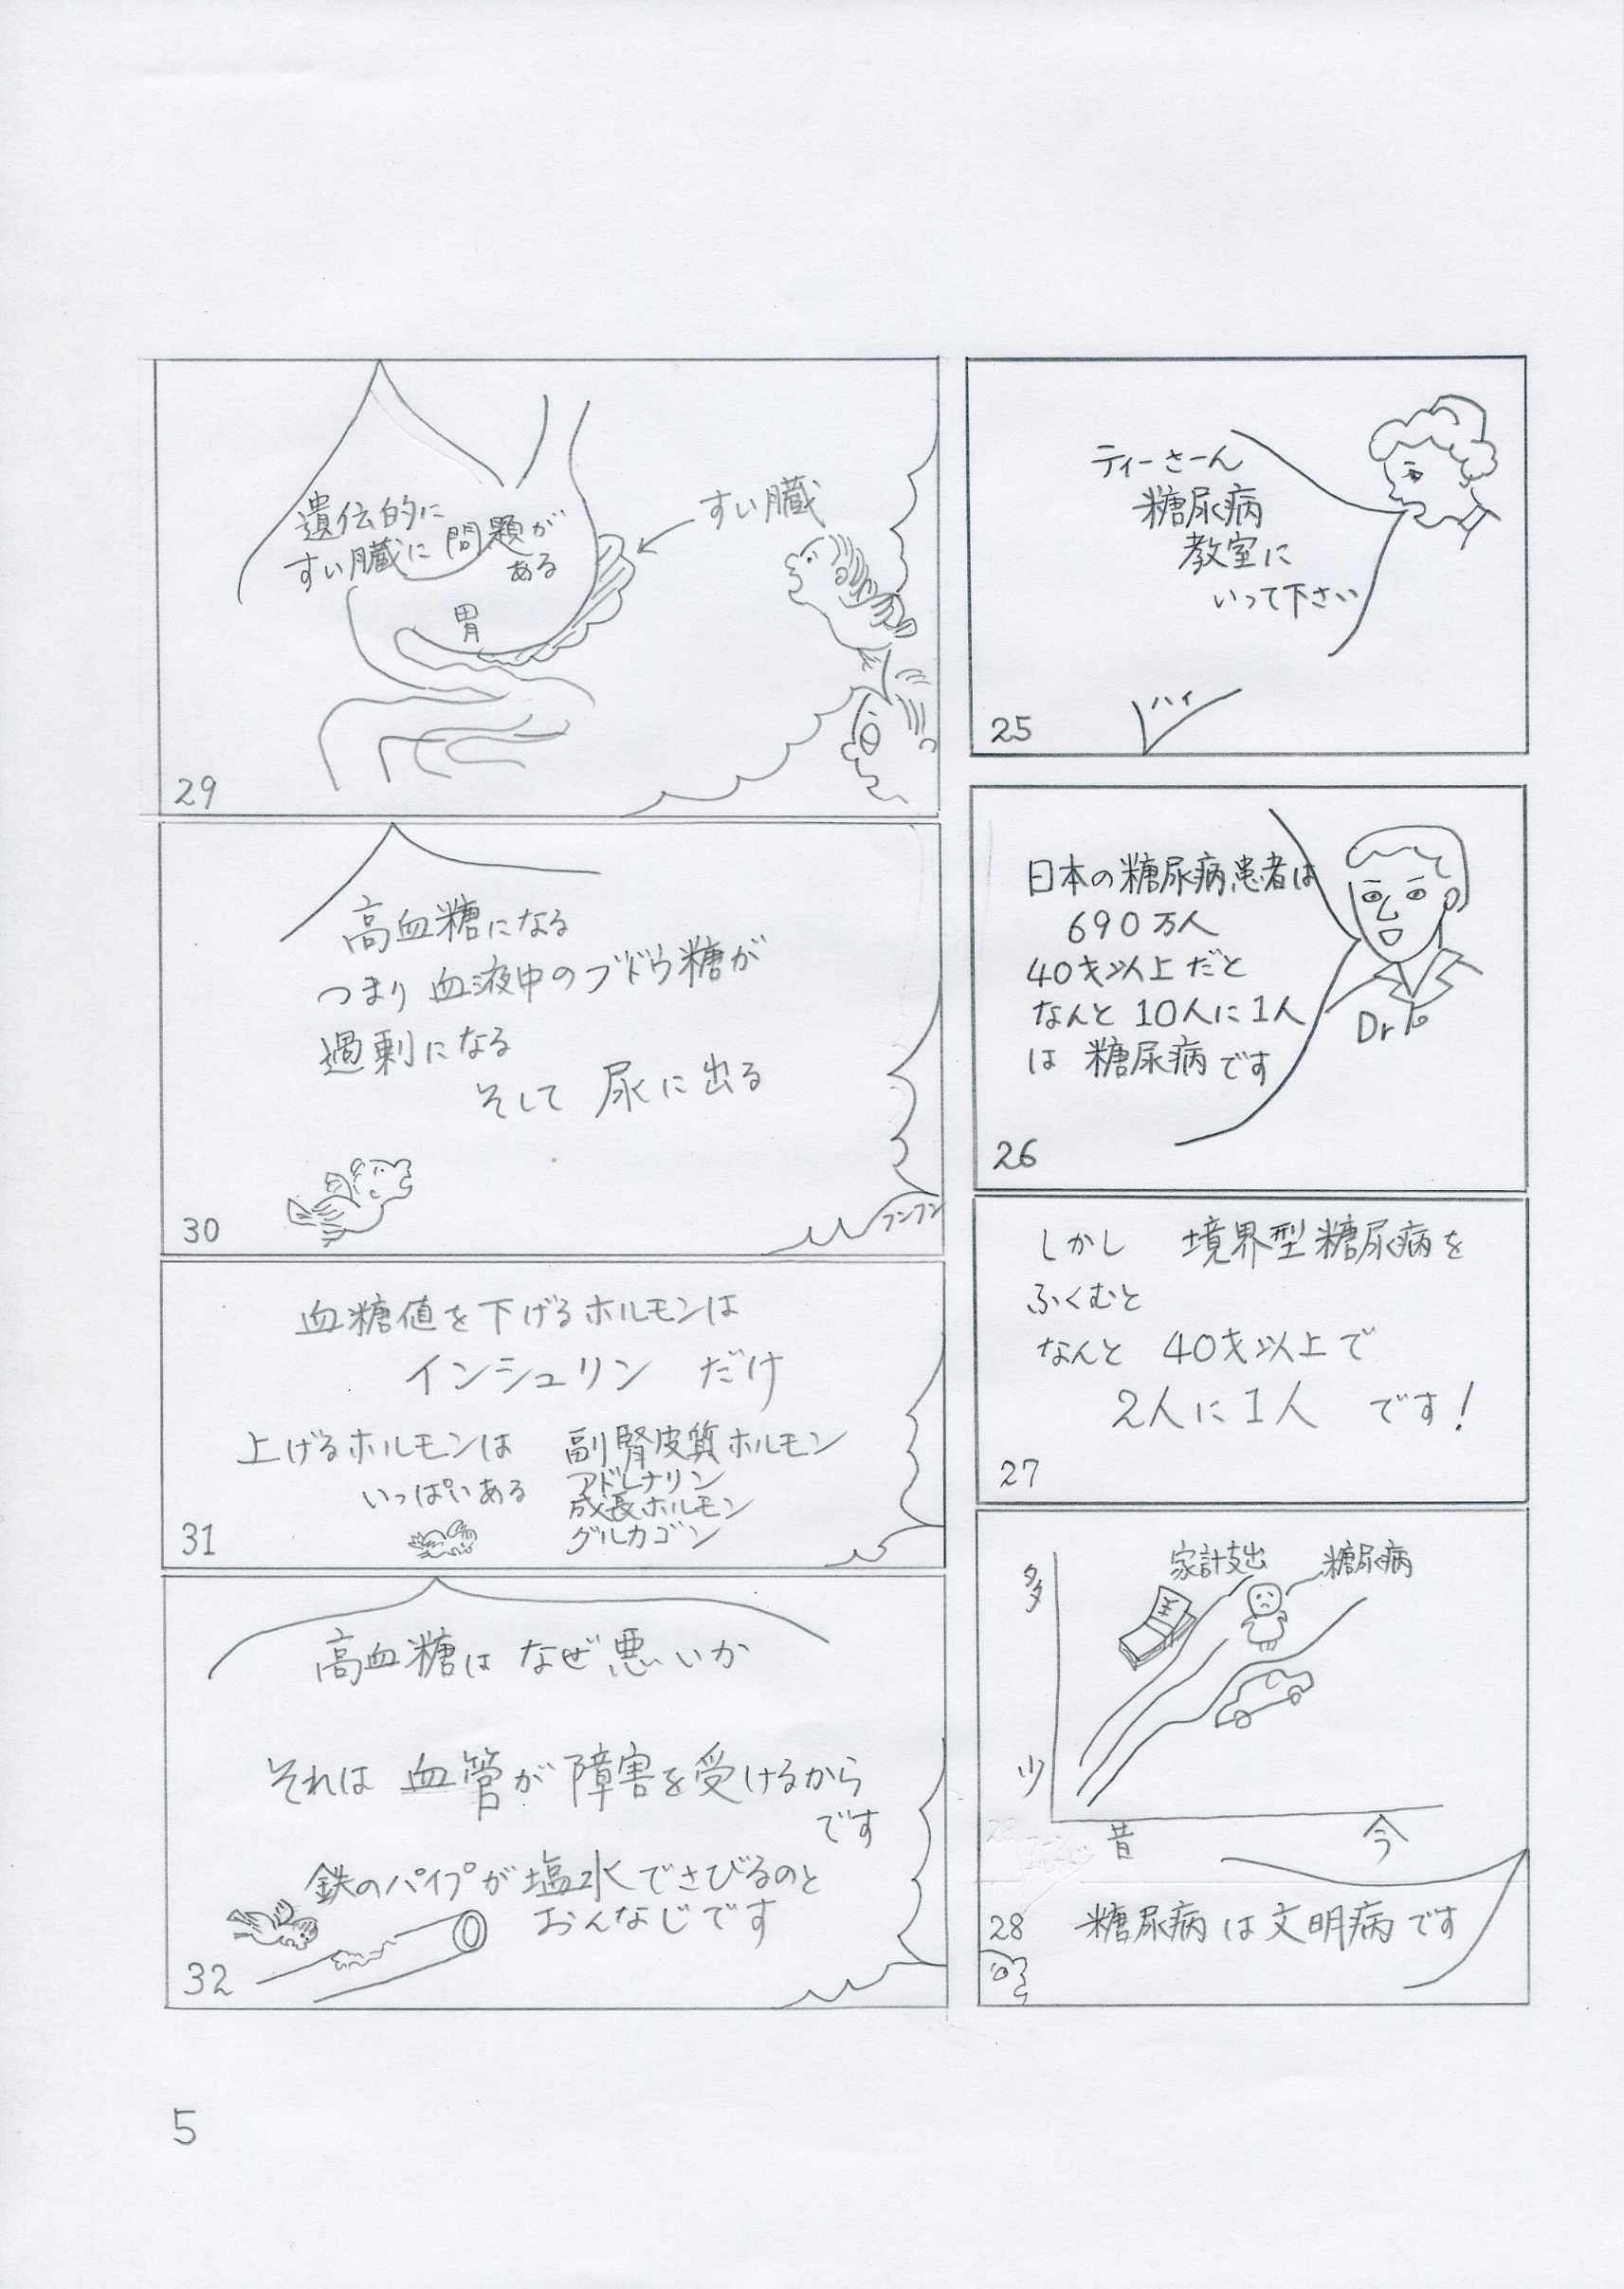 ティーさーん
糖尿病
教室に
いって下さい
ハイ
25
日本の糖尿病患者は
690万人
40才以上だと
なんと10人に1人
は 糖尿病です
Dr
26
しかし 境界型糖尿病を
ふくむと
なんと 40才以上で
2人に1人 です!
27
多
少
家計支出
糖尿病
昔
今
28
糖尿病は文明病です
遺伝的に
すい臓に問題が
ある
胃
すい臓
29
高血糖になる
つまり血液中のブドウ糖が
過剰になる
そして 尿に出る
フンフン
30
血糖値を下げるホルモンは
インシュリン だけ
上げるホルモンは
いっぱいある
副腎皮質ホルモン
アドレナリン
成長ホルモン
グルカゴン
31
高血糖は なぜ悪いか
それは 血管が障害を受けるから
です
鉄のパイプが塩水でさびるのと
おんなじです
32
5